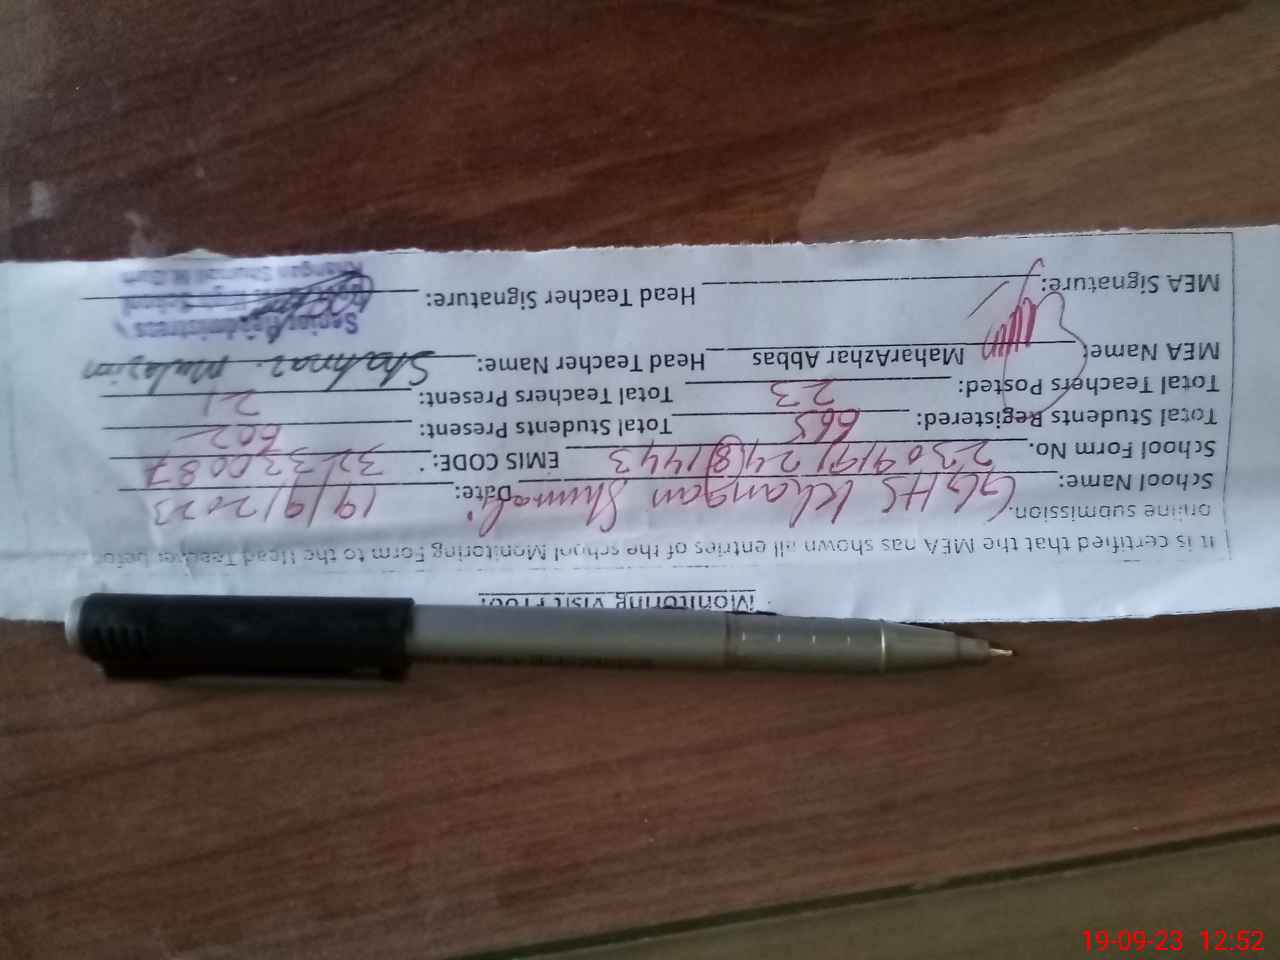 Monitoring Visit Proof
It is certified that the MEA has shown all entries of the school Monitoring Form to the Head Teacher before
online submission.
School Name: GGHS Khangan Shumali Date: 19/9/2023
School Form No. 230919/248/1443 EMIS CODE: 32330087
Total Students Registered: 665 Total Students Present: 602
Total Teachers Posted: 23 Total Teachers Present: 21
MEA Name: MaharAzhar Abbas Head Teacher Name: Shahnaz Mulazim
MEA Signature: Head Teacher Signature:
Senior Headmistress
School
Khangan Shumali
19-09-23 12:52